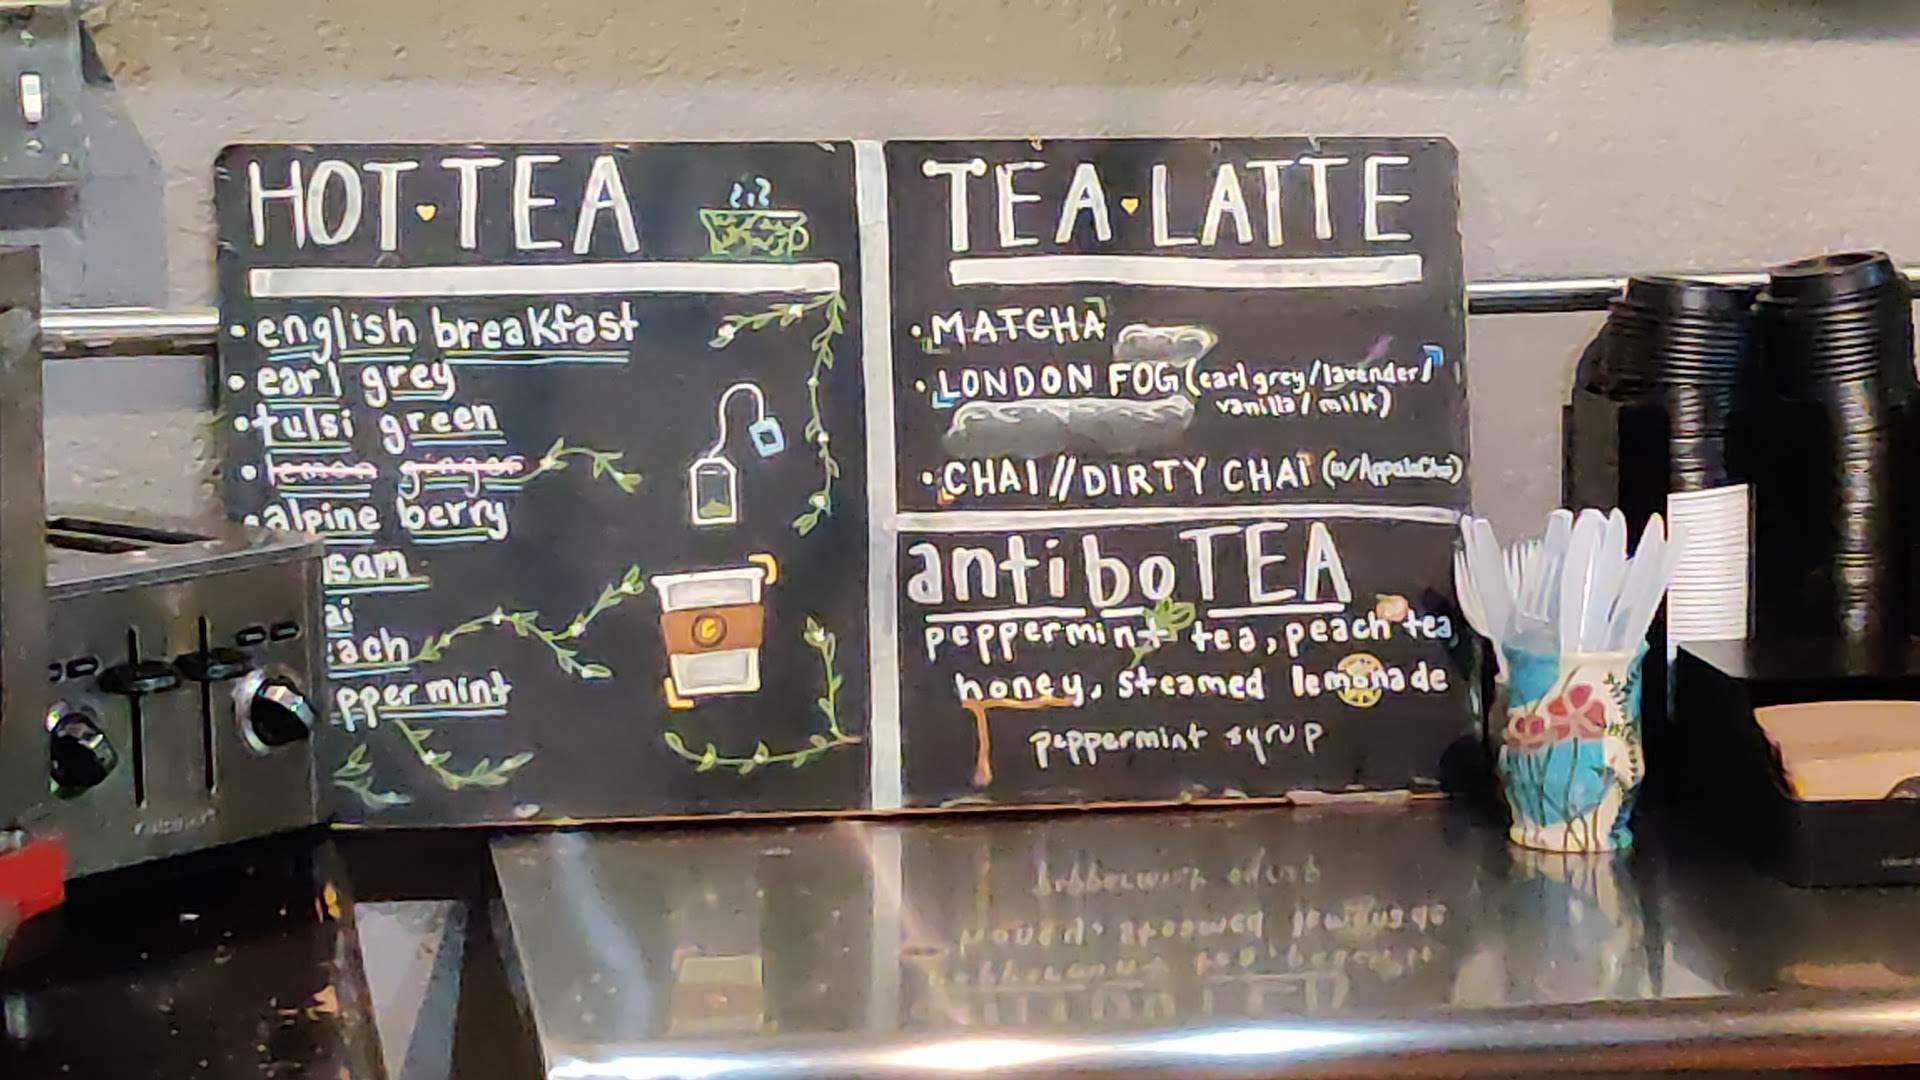 HOT TEA
• english breakfast
• earl grey
• tulsi green
• lemon ginger
• alpine berry
lsam
ai
each
pper mint
TEA LATTE
• MATCHA
• LONDON FOG (earl grey/lavender/
vanilla/milk)
• CHAI // DIRTY CHAI (w/AppalaChai)
antiboTEA
peppermint tea, peach tea,
honey, steamed lemonade
peppermint syrup